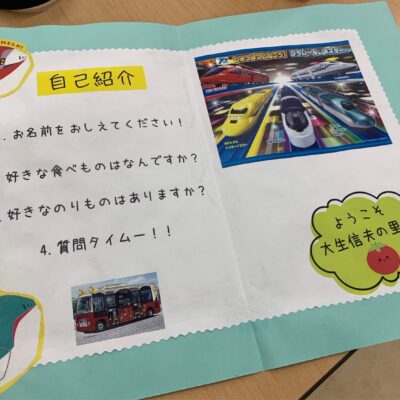 MECHI
自己紹介
. お名前をおしえてください!
好きな食べものはなんですか?
. 好きなのりものはありますか?
4. 質問タイムー!!
ようこそ
大生信夫の里